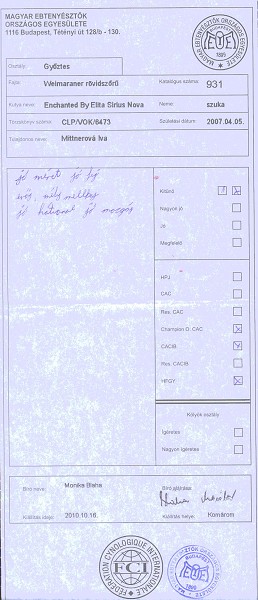 MAGYAR EBTENYÉSZTŐK
ORSZÁGOS EGYESÜLETE
1116 Budapest, Tétényi út 128/b - 130.
MAGYAR EBTENYÉSZTŐK ORSZÁGOS EGYESÜLETE
BUDAPEST
1899
Osztály: Győztes
Fajta: Weimaraner rövidszőrű Katalógus száma: 931
Kutya neve: Enchanted By Elita Sirius Nova Neme: szuka
Törzskönyv száma: CLP/VOK/6473 Születési dátum: 2007.04.05.
Tulajdonos neve: Mittnerová Iva
jó méret jó fej
erős, mély mellkas
jó hátvonal jó mozgás
Kitűnő 1 X
Nagyon jó
Jó
Megfelelő
HPJ
CAC
Res. CAC
Champion O. CAC X
CACIB X
Res. CACIB
HFGY X
Kölyök osztály
Ígéretes
Nagyon ígéretes
Bíró neve: Monika Blaha Bíró aláírása:
Kiállítás ideje: 2010.10.16. Kiállítás helye: Komárom
FEDERATION CYNOLOGIQUE INTERNATIONALE
FCI